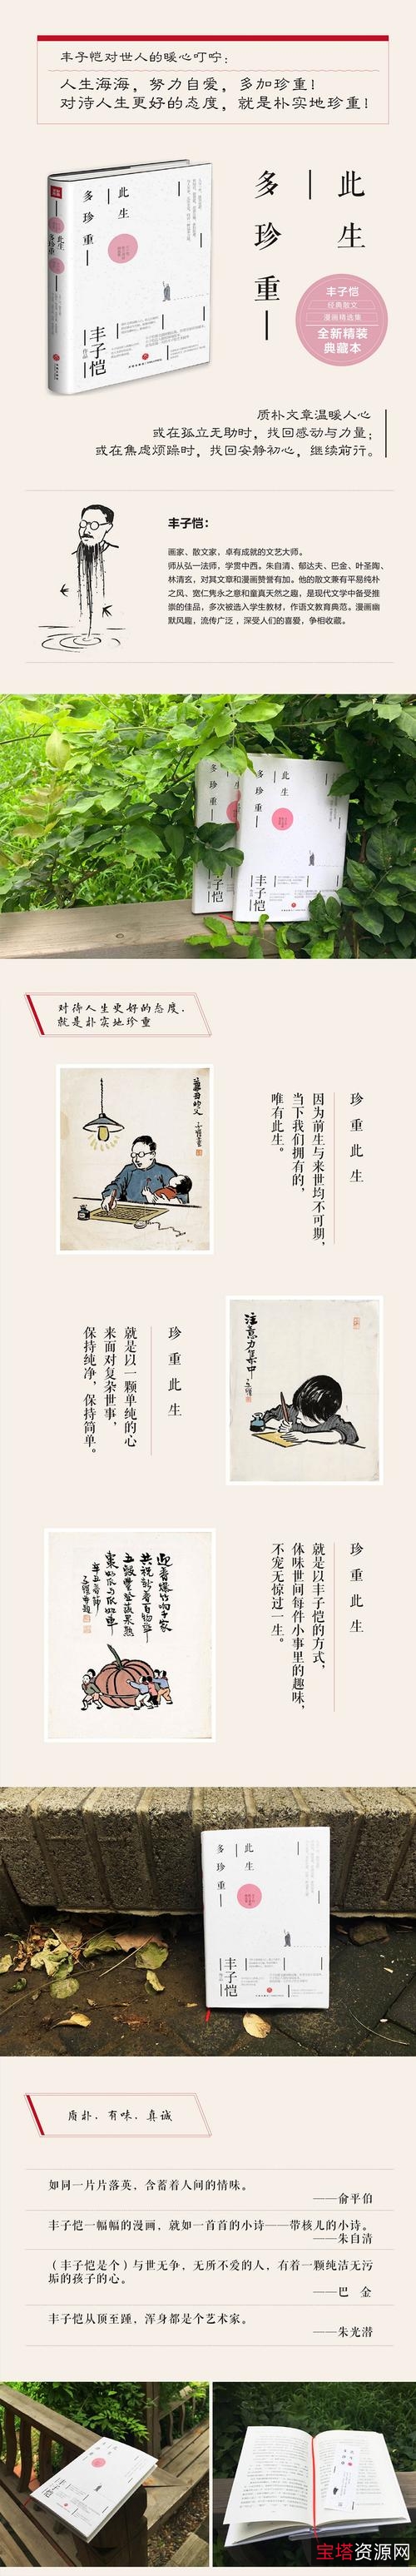 丰子恺对世人的暖心叮咛：
人生海海，努力自爱，多加珍重！
对待人生更好的态度，就是朴实地珍重！
此生
多珍重
丰子恺
作品
此生多珍重
此生
多珍重
丰子恺
经典散文
漫画精选集
全新精装
典藏本
质朴文章温暖人心
或在孤立无助时，找回感动与力量；
或在焦虑烦躁时，找回安静初心，继续前行。
丰子恺：
画家、散文家，卓有成就的文艺大师。
师从弘一法师，学贯中西。朱自清、郁达夫、巴金、叶圣陶、
林清玄，对其文章和漫画赞誉有加。他的散文兼有平易纯朴
之风、宽仁隽永之意和童真天然之趣，是现代文学中备受推
崇的佳品，多次被选入学生教材，作语文教育典范。漫画幽
默风趣，流传广泛，深受人们的喜爱，争相收藏。
此生
多珍重
丰子恺
对待人生更好的态度，
就是朴实地珍重
珍重此生
因为前生与来世均不可期，
当下我们拥有的，
唯有此生。
注意力集中
珍重此生
就是以一颗单纯的心
来面对复杂世事，
保持纯净，保持简单。
珍重此生
就是以丰子恺的方式，
体味世间每件小事里的趣味，
不宠无惊过一生。
此生
多珍重
丰子恺
质朴．有味．真诚
如同一片片落英，含蓄着人间的情味。
——俞平伯
丰子恺一幅幅的漫画，就如一首首的小诗——带核儿的小诗。
——朱自清
（丰子恺是个）与世无争，无所不爱的人，有着一颗纯洁无污
垢的孩子的心。
——巴　金
丰子恺从顶至踵，浑身都是个艺术家。
——朱光潜
宝塔资源网